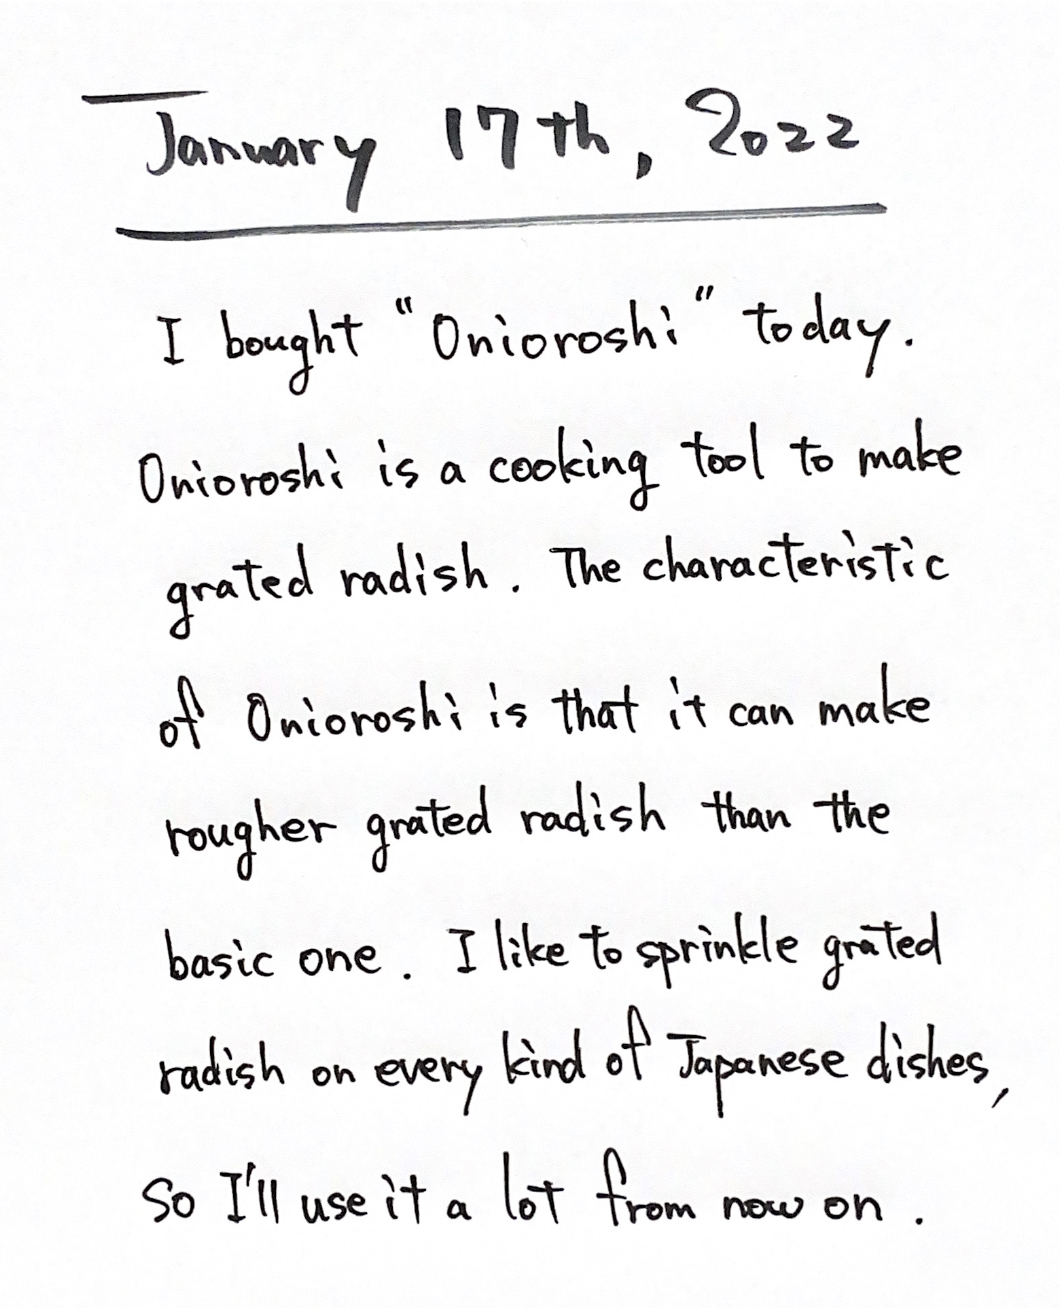 January 17th, 2022
I bought "Onioroshi" today.
Onioroshi is a cooking tool to make
grated radish. The characteristic
of Onioroshi is that it can make
rougher grated radish than the
basic one. I like to sprinkle grated
radish on every kind of Japanese dishes,
so I'll use it a lot from now on.